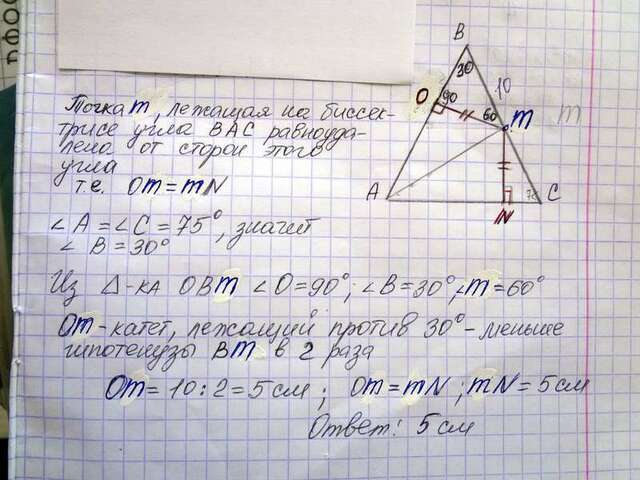 B
30
10
O
90
60
m
m
A
N
75
C
Точка m, лежащая на биссек-
трисе угла BAC равноуда-
лена от сторон этого
угла
т.е. Om = mN
∠A = ∠C = 75°, значит
∠B = 30°
Из Δ-ка OBm ∠O = 90°; ∠B = 30°, ∠m = 60°
Om - катет, лежащий против 30° - меньше
гипотенузы Bm в 2 раза
Om = 10 : 2 = 5 см ; Om = mN ; mN = 5 см
Ответ: 5 см